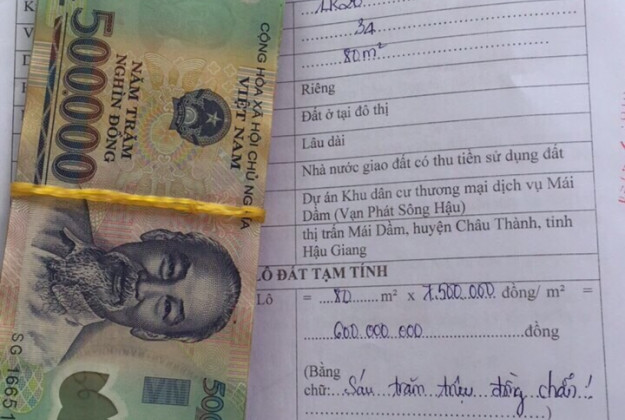 K
V
D
1K20
34
80m²
Riêng
Đất ở tại đô thị
Lâu dài
Nhà nước giao đất có thu tiền sử dụng đất
Dự án Khu dân cư thương mại dịch vụ Mái
Dầm (Vạn Phát Sông Hậu)
thị trấn Mái Dầm, huyện Châu Thành, tỉnh
Hậu Giang
LÔ ĐẤT TẠM TÍNH
Lô = 80 m² x 7.500.000 đồng/ m² =
600.000.000 đồng
(Bằng
chữ: Sáu trăm triệu đồng chẵn!
500.000
NĂM TRĂM
NGHÌN ĐỒNG
CỘNG HÒA XÃ HỘI CHỦ NGHĨA
VIỆT NAM
SG 16651
500